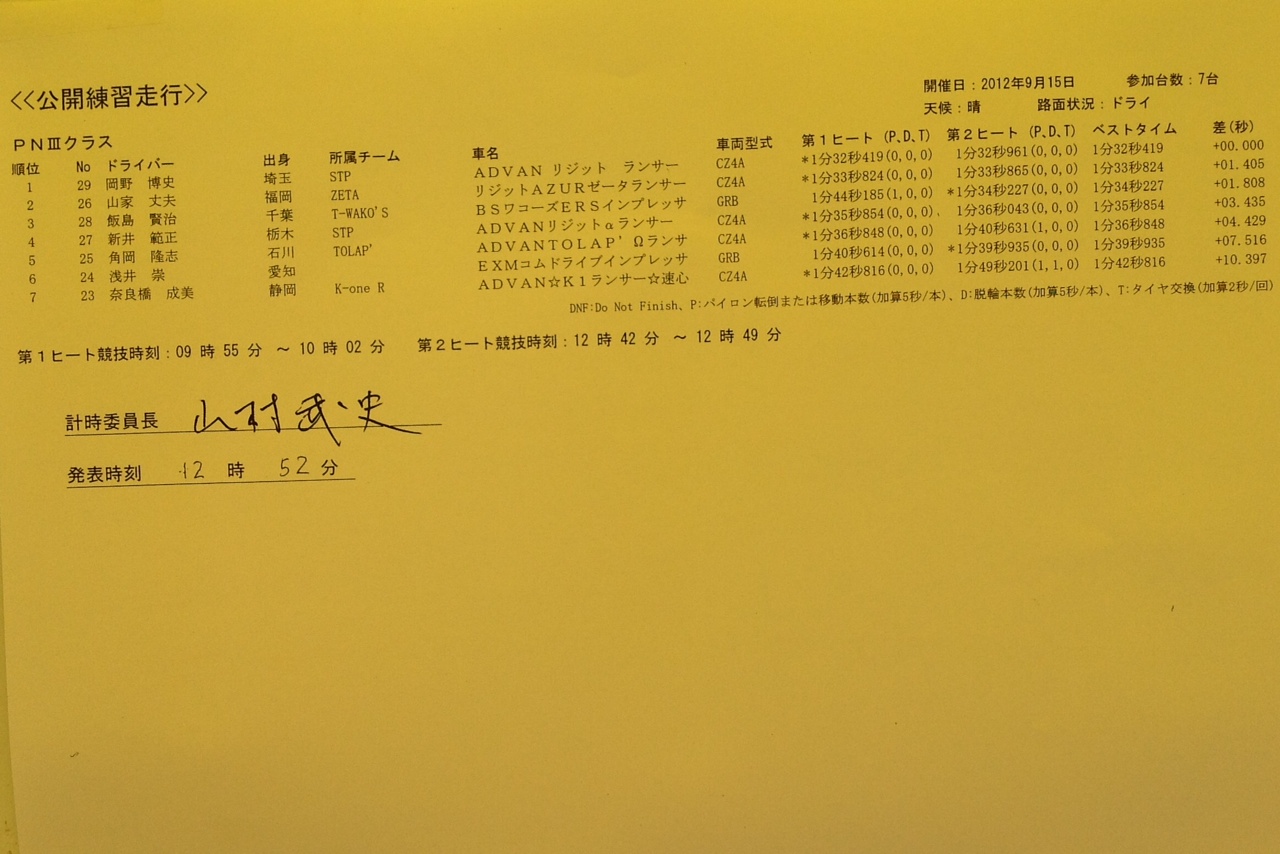 <<公開練習走行>>
開催日：2012年9月15日 参加台数：7台
天候：晴 路面状況：ドライ
ＰＮⅢクラス
順位 No ドライバー 出身 所属チーム 車名 車両型式 第１ヒート (P､D､T) 第２ヒート (P､D､T) ベストタイム 差(秒)
1 29 岡野 博史 埼玉 STP ＡＤＶＡＮ リジット ランサー CZ4A *1分32秒419(0,0,0) 1分32秒961(0,0,0) 1分32秒419 +00.000
2 26 山家 丈夫 福岡 ZETA リジットＡＺＵＲゼータランサー CZ4A *1分33秒824(0,0,0) 1分33秒865(0,0,0) 1分33秒824 +01.405
3 28 飯島 賢治 千葉 T-WAKO'S ＢＳワコーズＥＲＳインプレッサ GRB 1分44秒185(1,0,0) *1分34秒227(0,0,0) 1分34秒227 +01.808
4 27 新井 範正 栃木 STP ＡＤＶＡＮリジットαランサー CZ4A *1分35秒854(0,0,0) 1分36秒043(0,0,0) 1分35秒854 +03.435
5 25 角岡 隆志 石川 TOLAP' ＡＤＶＡＮＴＯＬＡＰ’Ωランサ CZ4A *1分36秒848(0,0,0) 1分40秒631(1,0,0) 1分36秒848 +04.429
6 24 浅井 崇 愛知 ＥＸＭコムドライブインプレッサ GRB 1分40秒614(0,0,0) *1分39秒935(0,0,0) 1分39秒935 +07.516
7 23 奈良橋 成美 静岡 K-one R ＡＤＶＡＮ☆Ｋ１ランサー☆速心 CZ4A *1分42秒816(0,0,0) 1分49秒201(1,1,0) 1分42秒816 +10.397
DNF:Do Not Finish、P:パイロン転倒または移動本数(加算5秒/本)、D:脱輪本数(加算5秒/本)、T:タイヤ交換(加算2秒/回)
第１ヒート競技時刻：09 時 55 分 ～ 10 時 02 分 第２ヒート競技時刻：12 時 42 分 ～ 12 時 49 分
計時委員長 山村武史
発表時刻 12 時 52 分